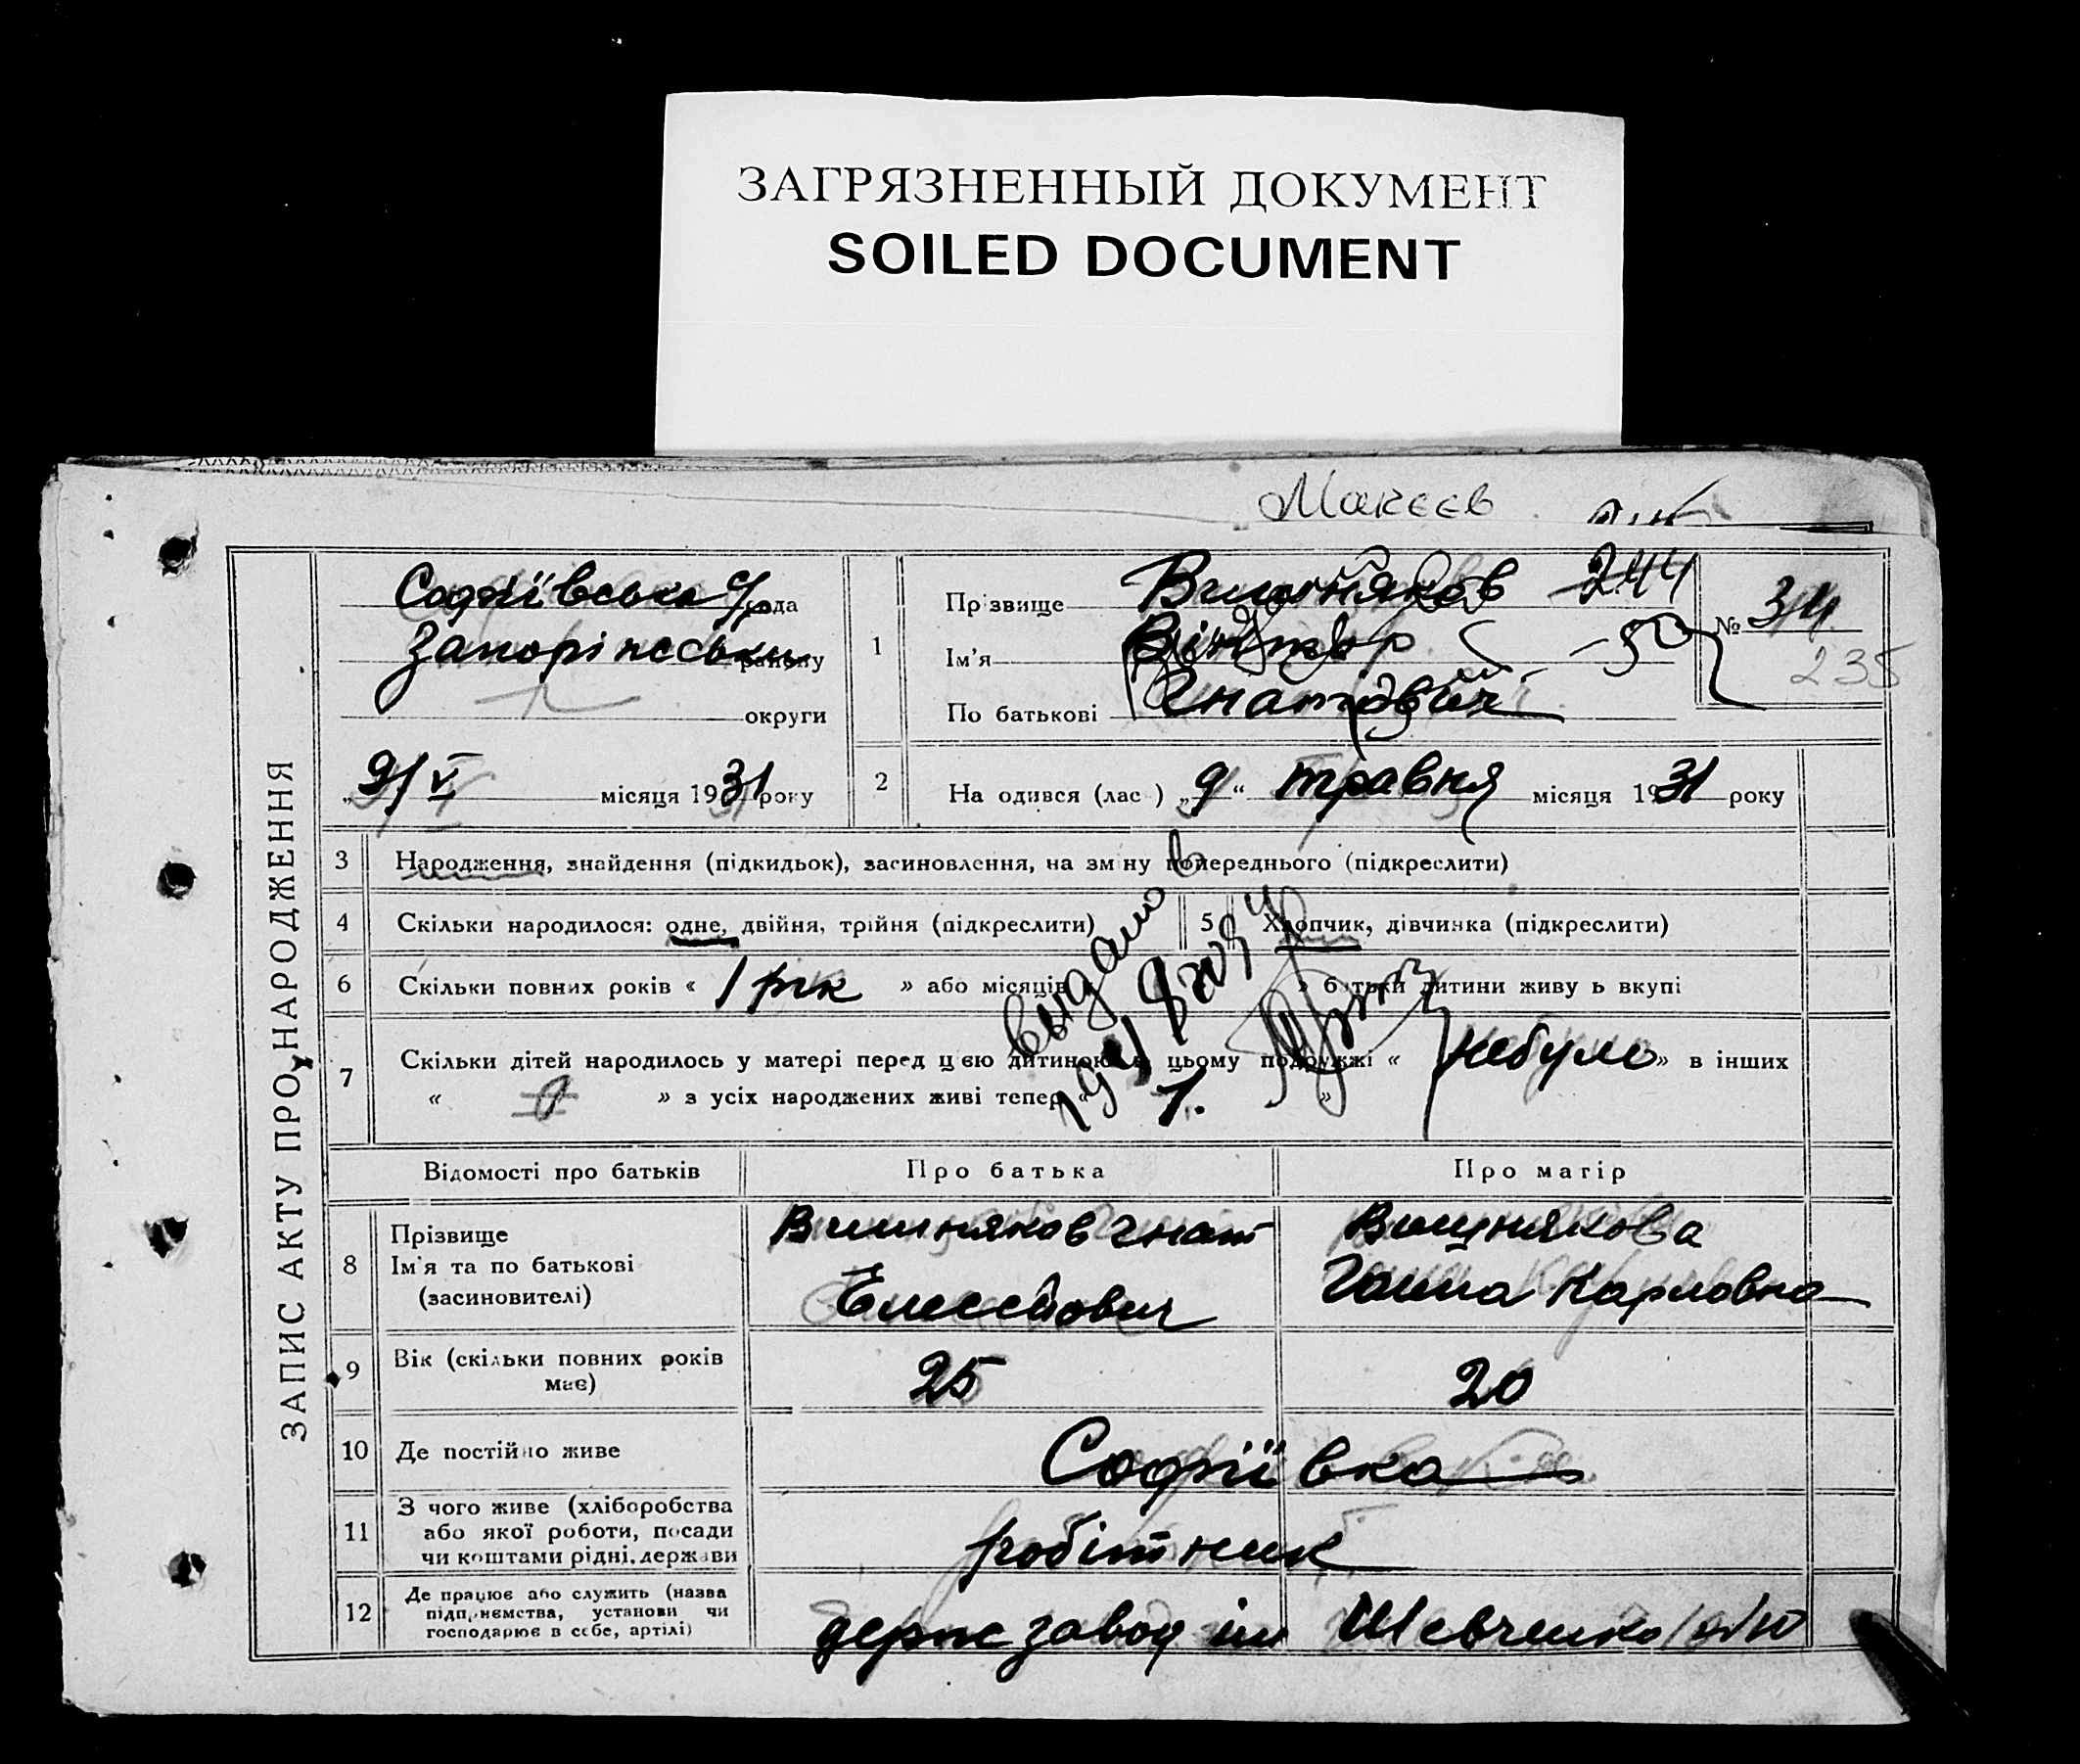 ЗАГРЯЗНЕННЫЙ ДОКУМЕНТ
SOILED DOCUMENT
Макєєв
ЗАПИС АКТУ ПРО НАРОДЖЕННЯ
Софіївська с/рада
Запоріжськи району
округи
„9/V місяця 1931 року
1
Прізвище Вишняков 244
Ім'я Віктор -50
По батькові Гнатович
№ 34
235
2 На одився (лас ) „9“ травня місяця 1931 року
3 Народження, знайдення (підкидьок), засиновлення, на зміну попереднього (підкреслити)
4 Скільки народилося: одне, двійня, трійня (підкреслити)
5 Хлопчик, дівчинка (підкреслити)
6 Скільки повних років « 1 рік » або місяців » батьки дитини живуть вкупі
выдано в
7 Скільки дітей народилось у матері перед цією дитиною в цьому подружжі « небуло » в інших
« » з усіх народжених живі тепер « 1. »
Відомості про батьків Про батька Про матір
8 Прізвище
Ім'я та по батькові
(засиновителі)
Вишняков Гнат
Елесейович
Вишнякова
Ганна Карловна
9 Вік (скільки повних років
має)
25 20
10 Де постійно живе Софіївка
11 З чого живе (хліборобства
або якої роботи, посади
чи коштами рідні, держави
робітник
12 Де працює або служить (назва
підприємства, установи чи
господарює в себе, артілі)
держ завод ім Шевченко